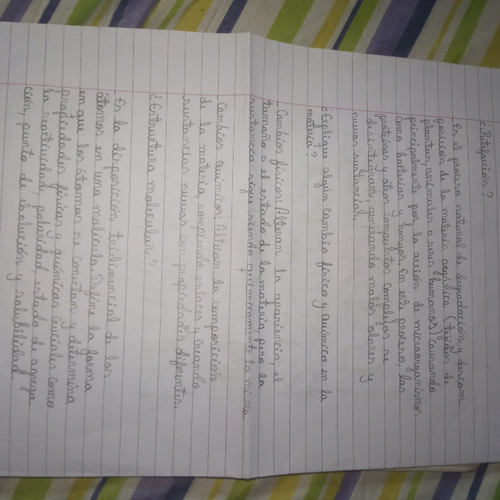 ¿Putifacion?
Es el proceso natural de degradación y descom
posición de la materia orgánica (tejidos de
plantas, animales o seres humanos causando
principalmente por la acción de microorganismos
como bacterias y hongos. En este proceso, las
proteínas y otros compuestos complejos se
desintegran, generando malos olores y
nuevas sustancias.
¿Explique algún cambio físico y químico en la
materia?
Cambios físicos: Alteran la apariencia el
tamaño o el estado de la materia pero la
sustancia sigue siendo químicamente la misma.
Cambios químicos: Alteran la composición
de la materia, rompiendo enlaces y creando
sustancias nuevas con propiedades diferentes.
¿Estructura molecular?
Es la disposición tridimensional de los
átomos en una molécula. Define la forma
en que los átomos se conectan y determina
propiedades físicas y químicas cruciales como
la reactividad, polaridad, estado de agrega
ción, punto de ebullución y solubilidad